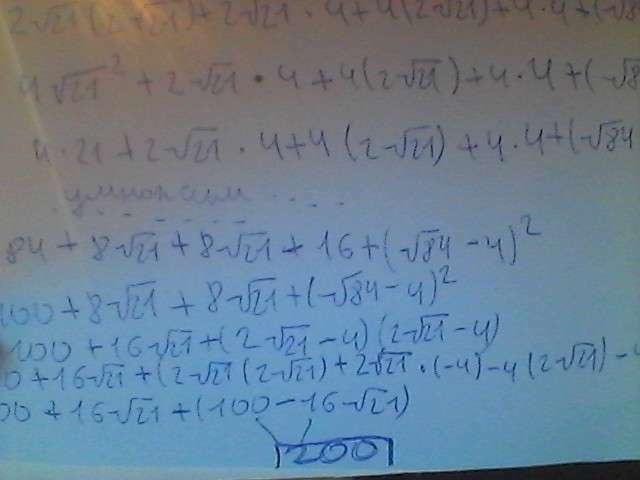 2√21(2√21)+2√21·4+4(2√21)+4·4+(√8
4√21²+2√21·4+4(2√21)+4·4+(√8
4·21+2√21·4+4(2√21)+4·4+(√84
умножаем ....
84+8√21+8√21+16+(√84-4)²
100+8√21+8√21+(√84-4)²
100+16√21+(2√21-4)(2√21-4)
0+16√21+(2√21(2√21)+2√21·(-4)-4(2√21)-4
00+16√21+(100-16√21)
200